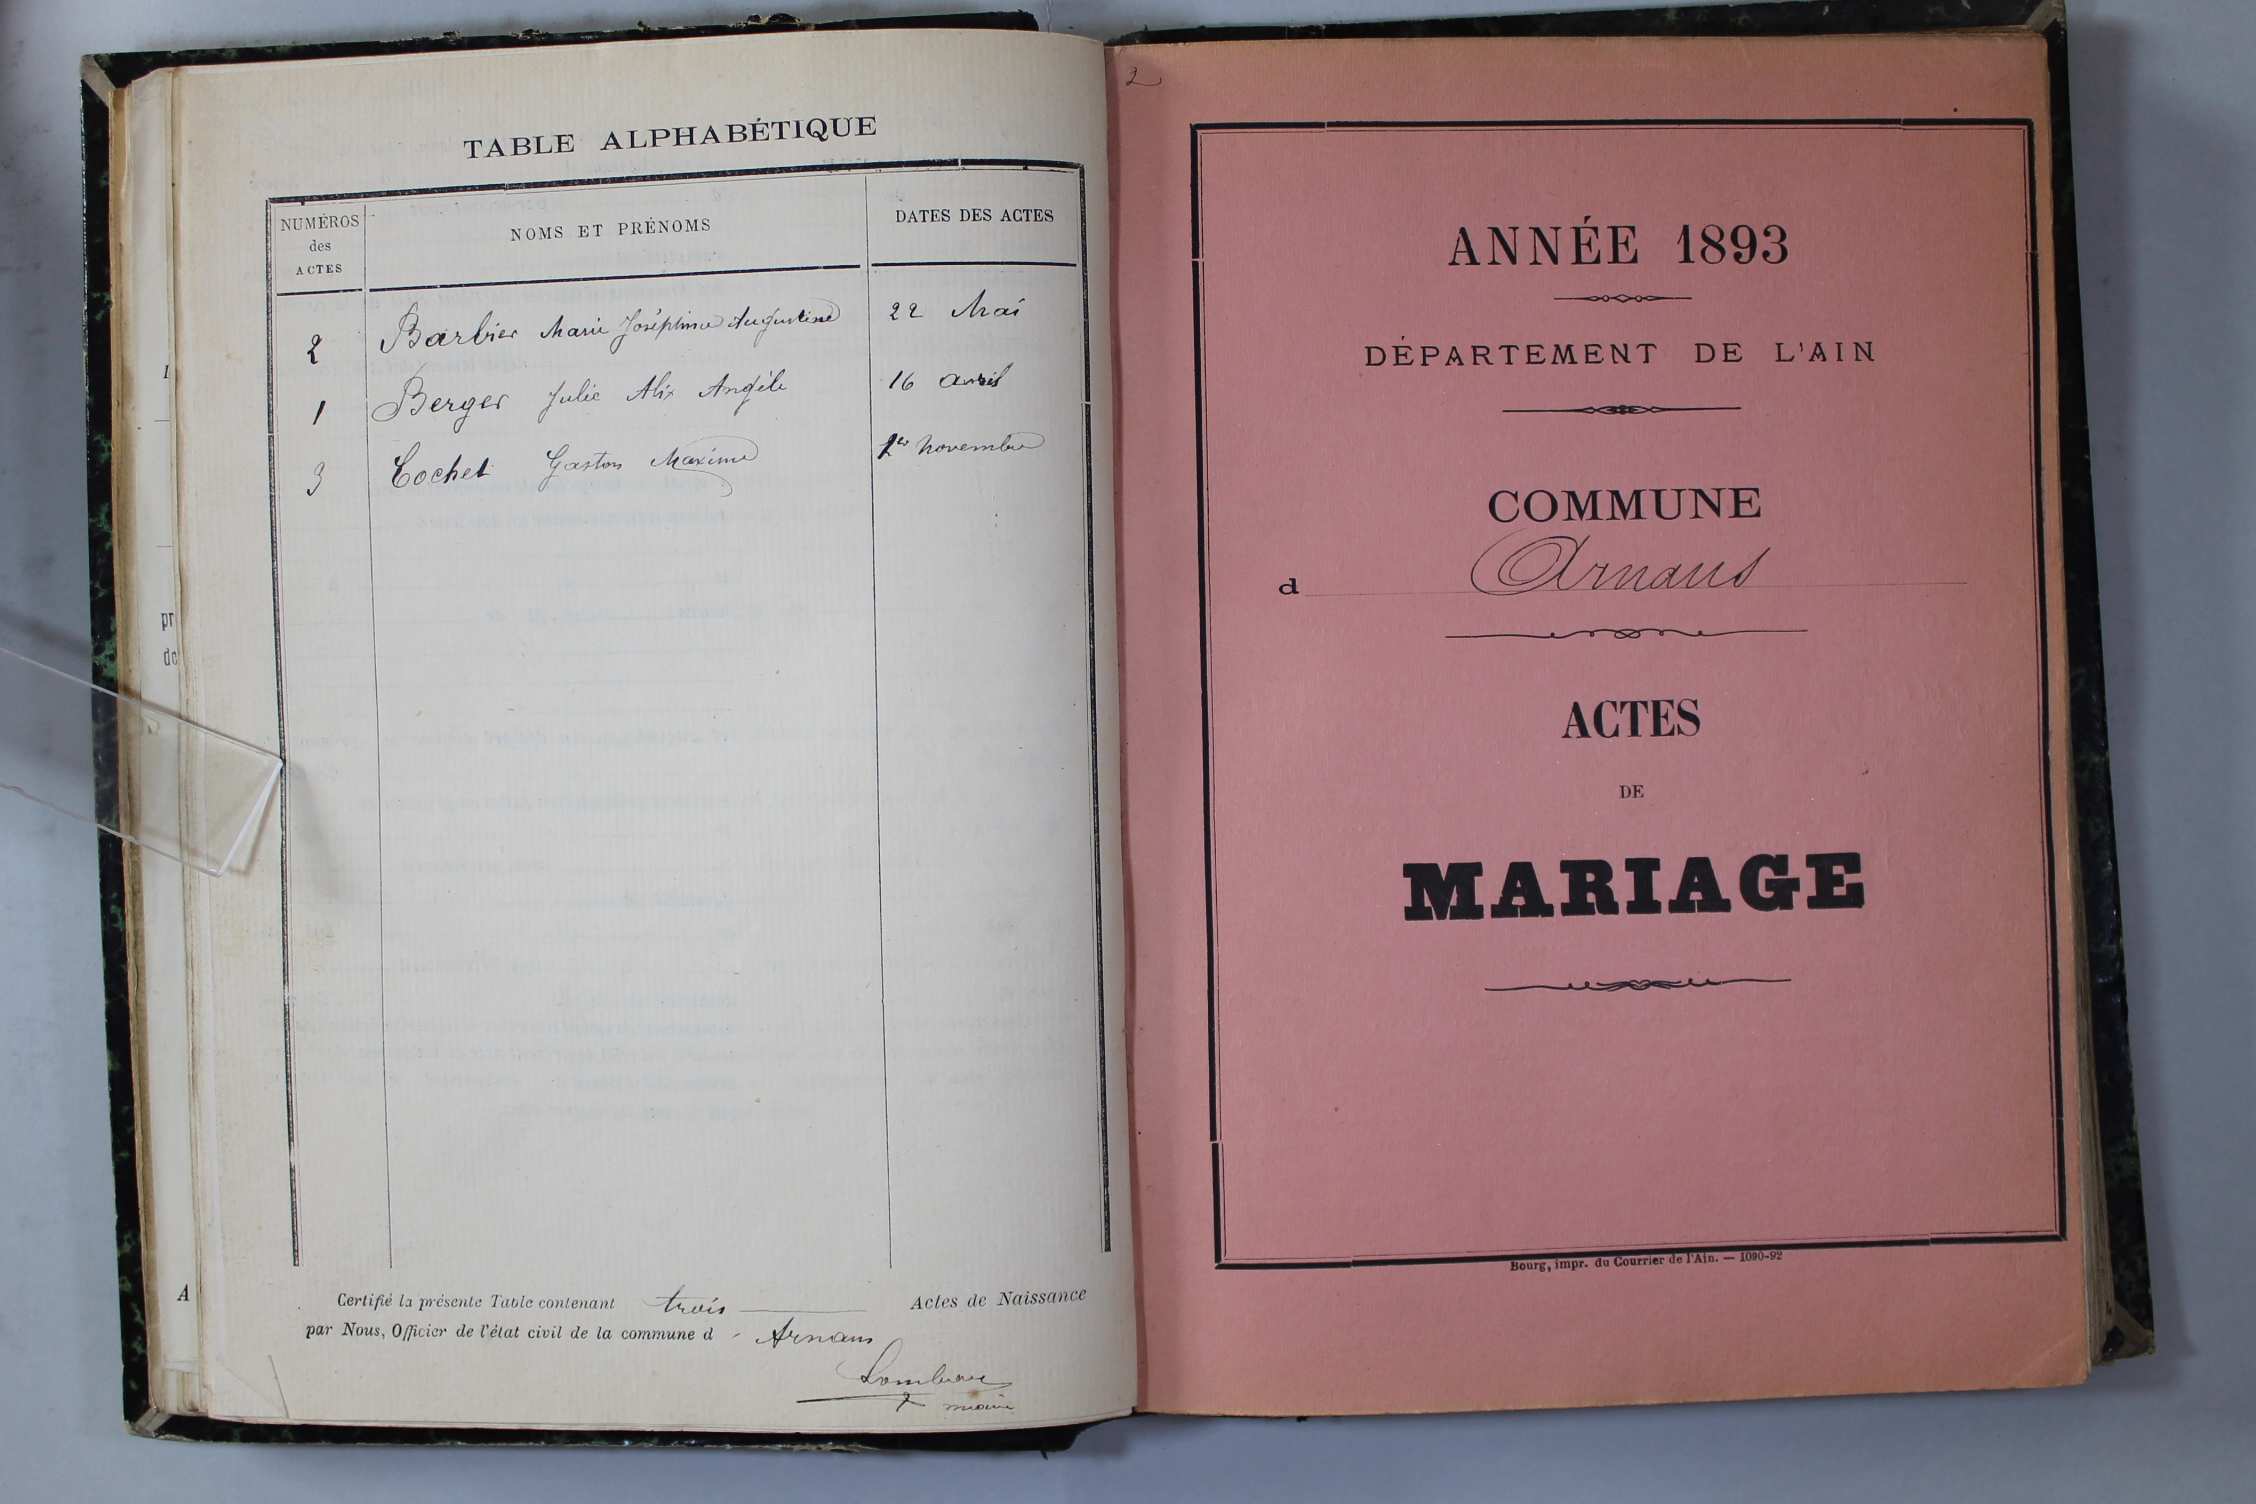 TABLE ALPHABÉTIQUE
NUMÉROS
des
ACTES
NOMS ET PRÉNOMS
DATES DES ACTES
2 Barbier Marie Joséphine Augustine 22 Mai
1 Berger Julie Alix Angèle 16 avril
3 Cochet Gaston Maxime 1er novembre
Certifié la présente Table contenant trois Actes de Naissance
par Nous, Officier de l'état civil de la commune d Arnans
maire
1
pr
de
A
2
ANNÉE 1893
DÉPARTEMENT DE L'AIN
COMMUNE
d Arnans
ACTES
DE
MARIAGE
Bourg, impr. du Courrier de l'Ain. — 1090-92